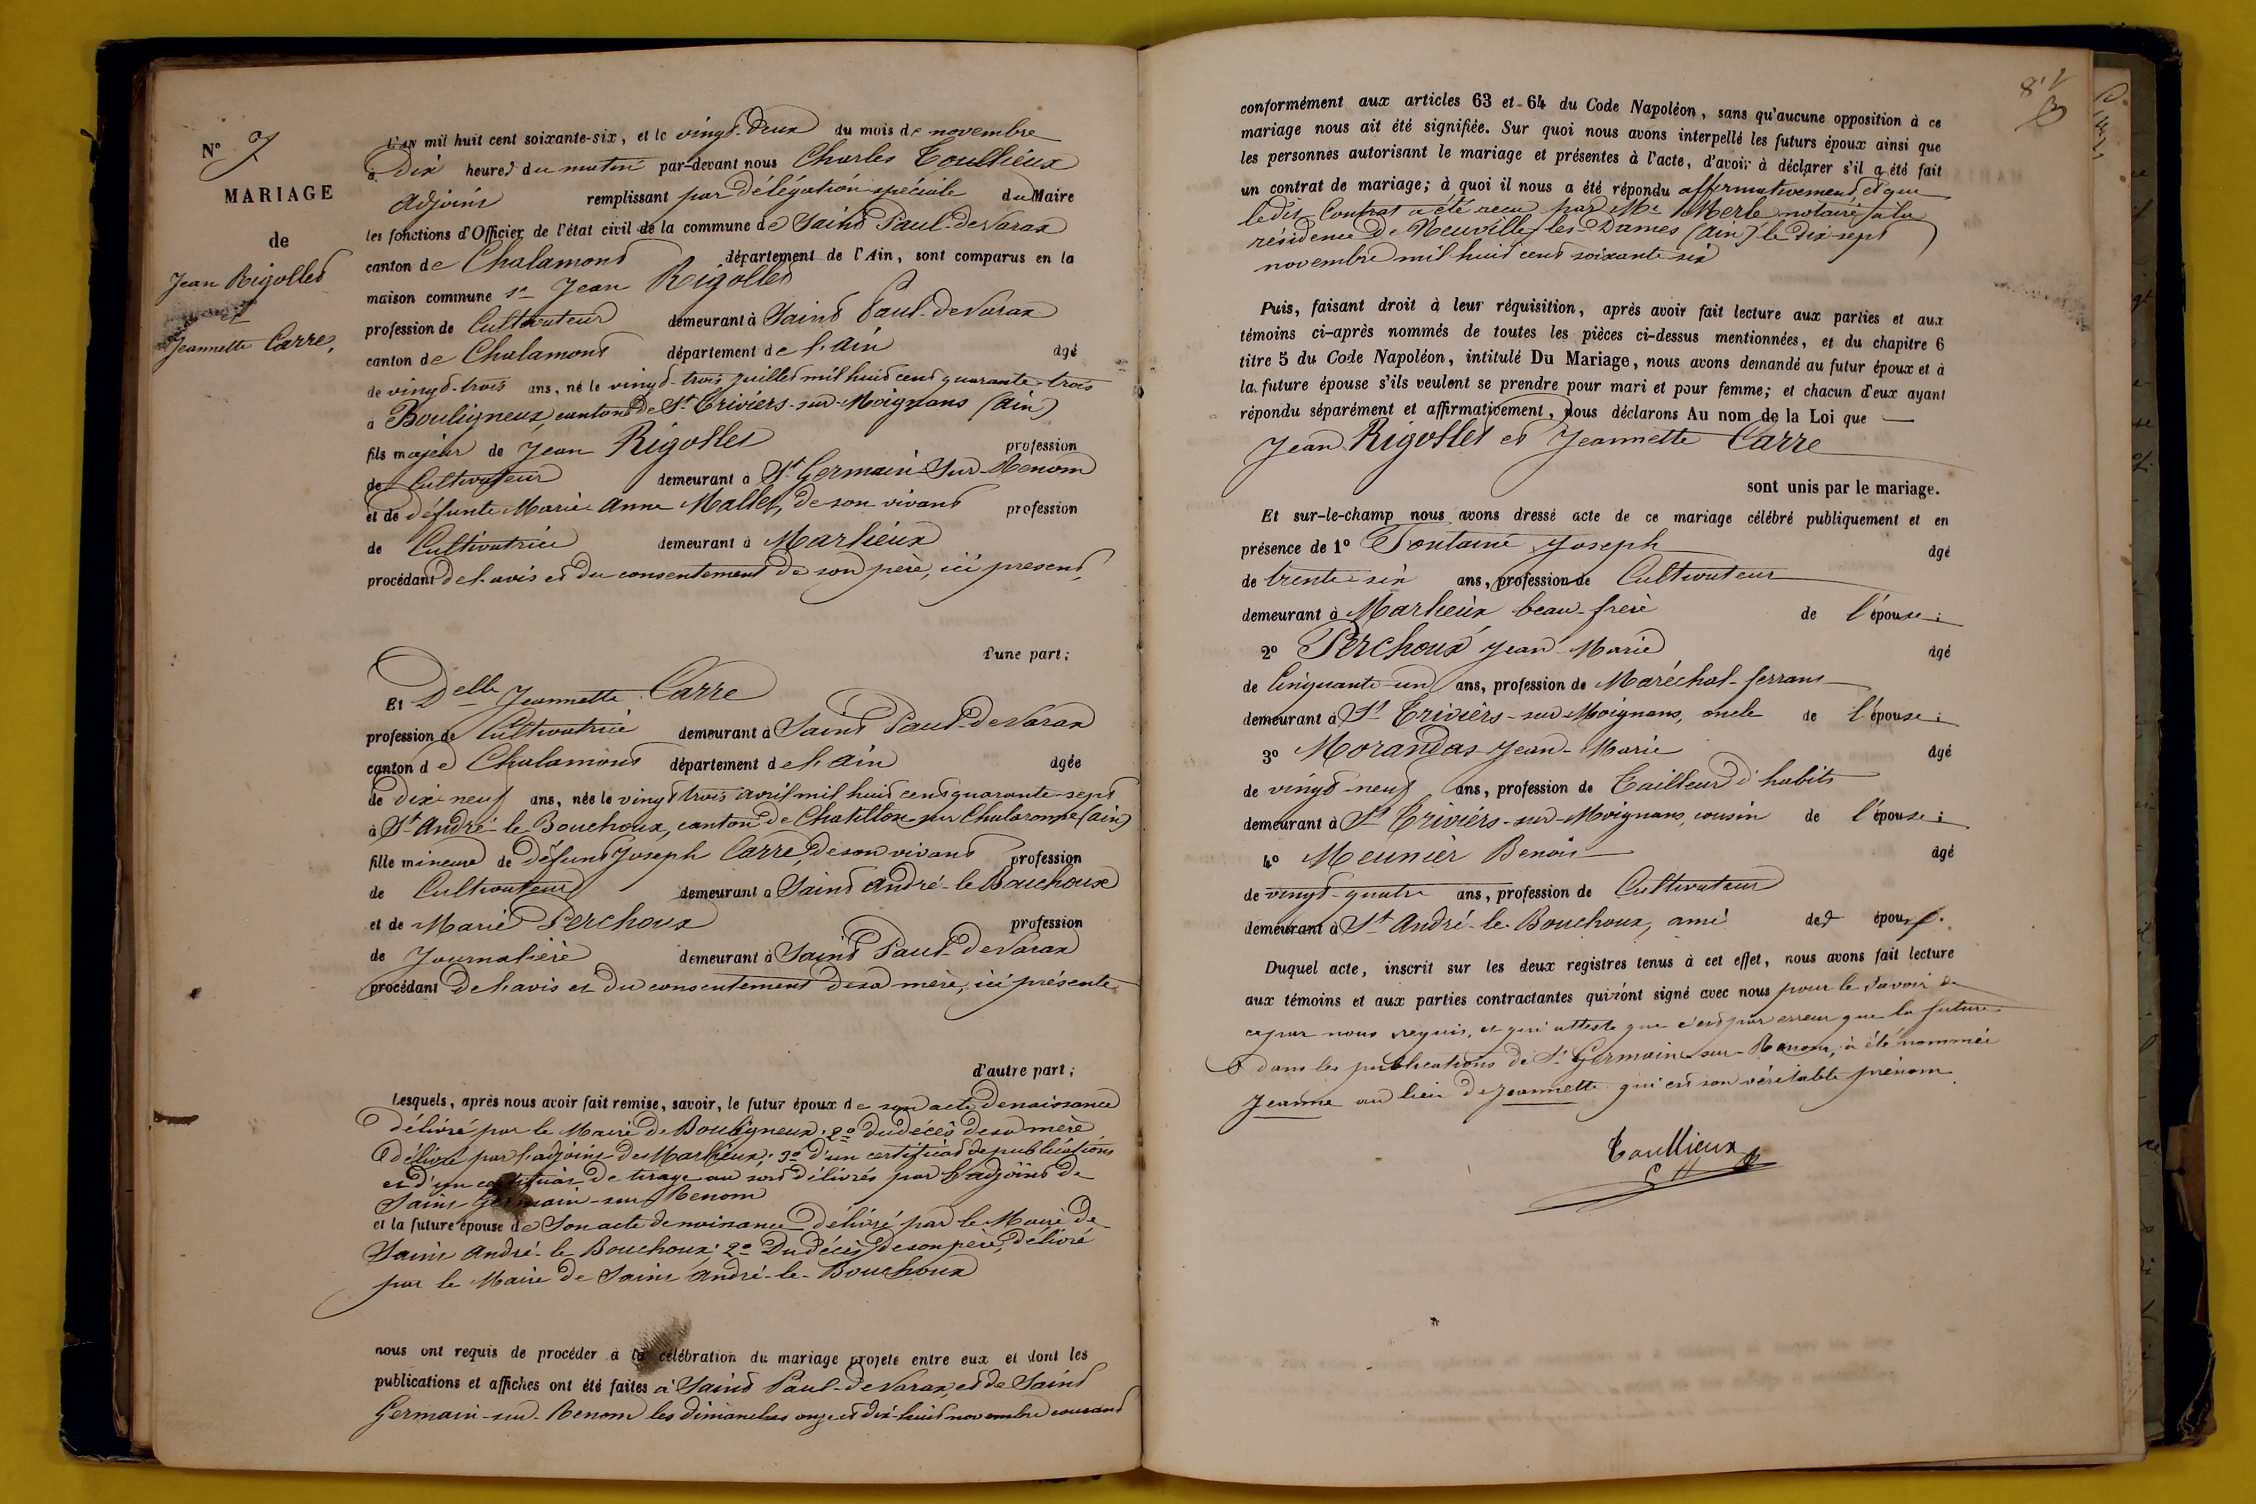 N° 7
MARIAGE
de
Jean Rigollet
et
Jeannette Carre,
L'an mil huit cent soixante-six, et le vingt-deux du mois de novembre
à Dix heures du matin par-devant nous Charles Toullieux
adjoint remplissant par délégation spéciale du Maire
les fonctions d'Officier de l'état civil de la commune de Saint Paul-de Varax
canton de Chalamont département de l'Ain, sont comparus en la
maison commune sr Jean Rigollet
profession de Cultivateur demeurant à Saint Paul-de Varax
canton de Chalamont département de l'ain âgé
de vingt-trois ans, né le vingt-trois juillet mil huit cent quarante-trois
à Bouligneux, canton de St Triviers-sur-Moignans (ain)
fils majeur de Jean Rigollet profession
de Cultivateur demeurant à St Germain-sur-Renom
et de défunte Marie Anne Mallet, de son vivant profession
de Cultivatrice demeurant à Marlieux
procédant de l'avis et du consentement de son père, ici présent,
d'une part;
Et Delle Jeannette Carre
profession de Cultivatrice demeurant à Saint Paul-de Varax
canton de Chalamont département de l'ain âgée
de dix-neuf ans, née le vingt trois avril mil huit cent quarante-sept
à St André-le Bouchoux, canton de Chatillon-sur Chalaronne (ain)
fille mineure de défunt Joseph Carre, de son vivant profession
de Cultivateur demeurant à Saint André-le Bouchoux
et de Marie Perchoux profession
de Journalière demeurant à Saint Paul-de Varax
procédant de l'avis et du consentement de sa mère, ici présente
d'autre part;
Lesquels, après nous avoir fait remise, savoir, le futur époux de son acte de naissance
délivré par le Maire de Bouligneux; 2° du décès de sa mère
délivré par l'adjoint de Marlieux; 3° d'un certificat de publications
et d'un certificat de tirage au sort délivrés par l'adjoint de
Saint Germain-sur-Renom
et la future épouse de Son acte de naissance délivré par le Maire de
Saint André-le Bouchoux; 2° Du décès de son père, délivré
par le Maire de Saint André-le-Bouchoux
nous ont requis de procéder à la célébration du mariage projeté entre eux et dont les
publications et affiches ont été faites à Saint Paul-de Varax, et de Saint
Germain-sur-Renom les dimanches onze et dix-huit novembre courant
conformément aux articles 63 et 64 du Code Napoléon, sans qu'aucune opposition à ce
mariage nous ait été signifiée. Sur quoi nous avons interpellé les futurs époux ainsi que
les personnes autorisant le mariage et présentes à l'acte, d'avoir à déclarer s'il a été fait
un contrat de mariage; à quoi il nous a été répondu affirmativement, et que
le dit Contrat a été reçu par Me Merle notaire à la
résidence de Neuville les Dames (ain) le dix-sept
novembre mil huit cent soixante six
Puis, faisant droit à leur réquisition, après avoir fait lecture aux parties et aux
témoins ci-après nommés de toutes les pièces ci-dessus mentionnées, et du chapitre 6
titre 5 du Code Napoléon, intitulé Du Mariage, nous avons demandé au futur époux et à
la future épouse s'ils veulent se prendre pour mari et pour femme; et chacun d'eux ayant
répondu séparément et affirmativement, nous déclarons Au nom de la Loi que —
Jean Rigollet et Jeannette Carre
sont unis par le mariage.
Et sur-le-champ nous avons dressé acte de ce mariage célébré publiquement et en
présence de 1° Fontaine Joseph âgé
de trente-six ans, profession de Cultivateur
demeurant à Marlieux beau-frère de l'épouse;
2° Perchoux Jean Marie âgé
de Cinquante-un ans, profession de Maréchal-ferrant
demeurant à St Triviers-sur-Moignans, oncle de l'épouse;
3° Morandas Jean-Marie âgé
de vingt-neuf ans, profession de Tailleur d'habits
demeurant à St Triviers-sur-Moignans, cousin de l'épouse;
4° Meunier Benoit âgé
de vingt-quatre ans, profession de Cultivateur
demeurant à St André-le-Bouchoux, ami des époux.
Duquel acte, inscrit sur les deux registres tenus à cet effet, nous avons fait lecture
aux témoins et aux parties contractantes qui n'ont signé avec nous pour le savoir de
ce par nous requis, et qui atteste que c'est par erreur que la future
dans les publications de St Germain-sur-Renom, a été nommée
Jeanne au lieu de Jeannette qui est son véritable prénom
Toullieux